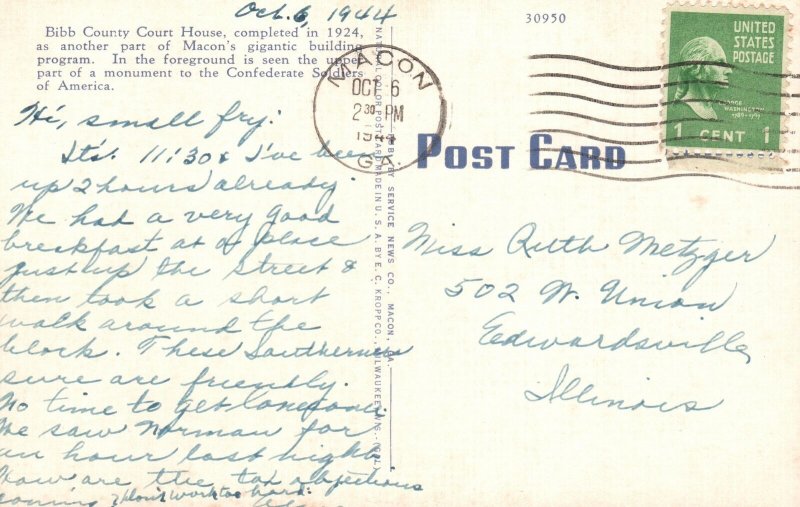 Oct. 6, 1944
Bibb County Court House, completed in 1924,
as another part of Macon's gigantic building
program. In the foreground is seen the upper
part of a monument to the Confederate Soldiers
of America.
Hi, small fry:
It's 11:30 & I've been
up 2 hours already.
We had a very good
breakfast at a place
just up the street &
then took a short
walk around the
block. These Southerners
sure are friendly.
No time to get lonesome.
We saw Norman for
an hour last night.
How are the tax objections
coming? Don't work too hard.
NATURAL COLOR POST CARD MADE IN U. S. A. BY E. C. KROPP CO., MILWAUKEE, WIS.
BY SERVICE NEWS CO., MACON, GA.
30950
MACON
OCT 6
2 30 PM
1944
GA.
UNITED
STATES
POSTAGE
GEORGE
WASHINGTON
1789-1797
1 CENT 1
POST CARD
Miss Ruth Metzger
502 W. Union
Edwardsville,
Illinois